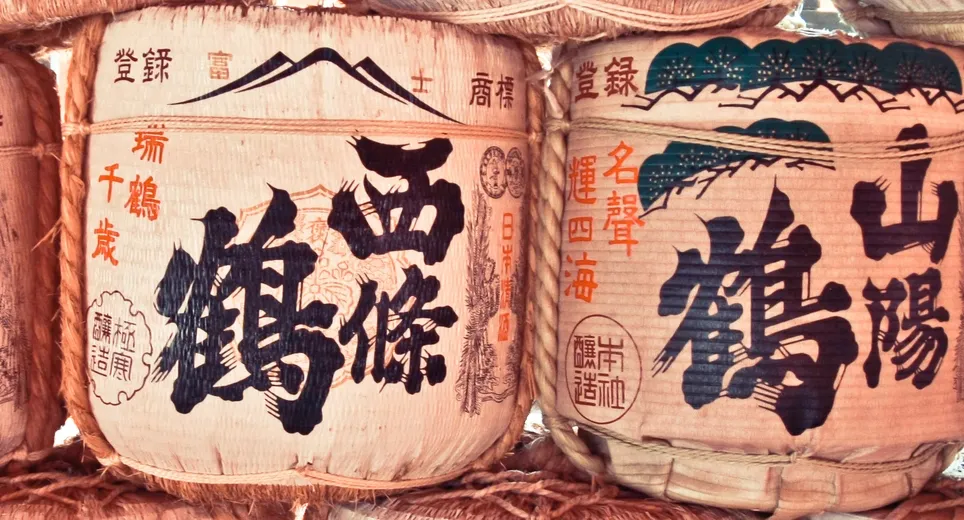 登録
富士
商標
西條
鶴
瑞鶴
千歳
日本
極寒
醸造
登録
山陽
鶴
名聲
輝四海
本社
醸造